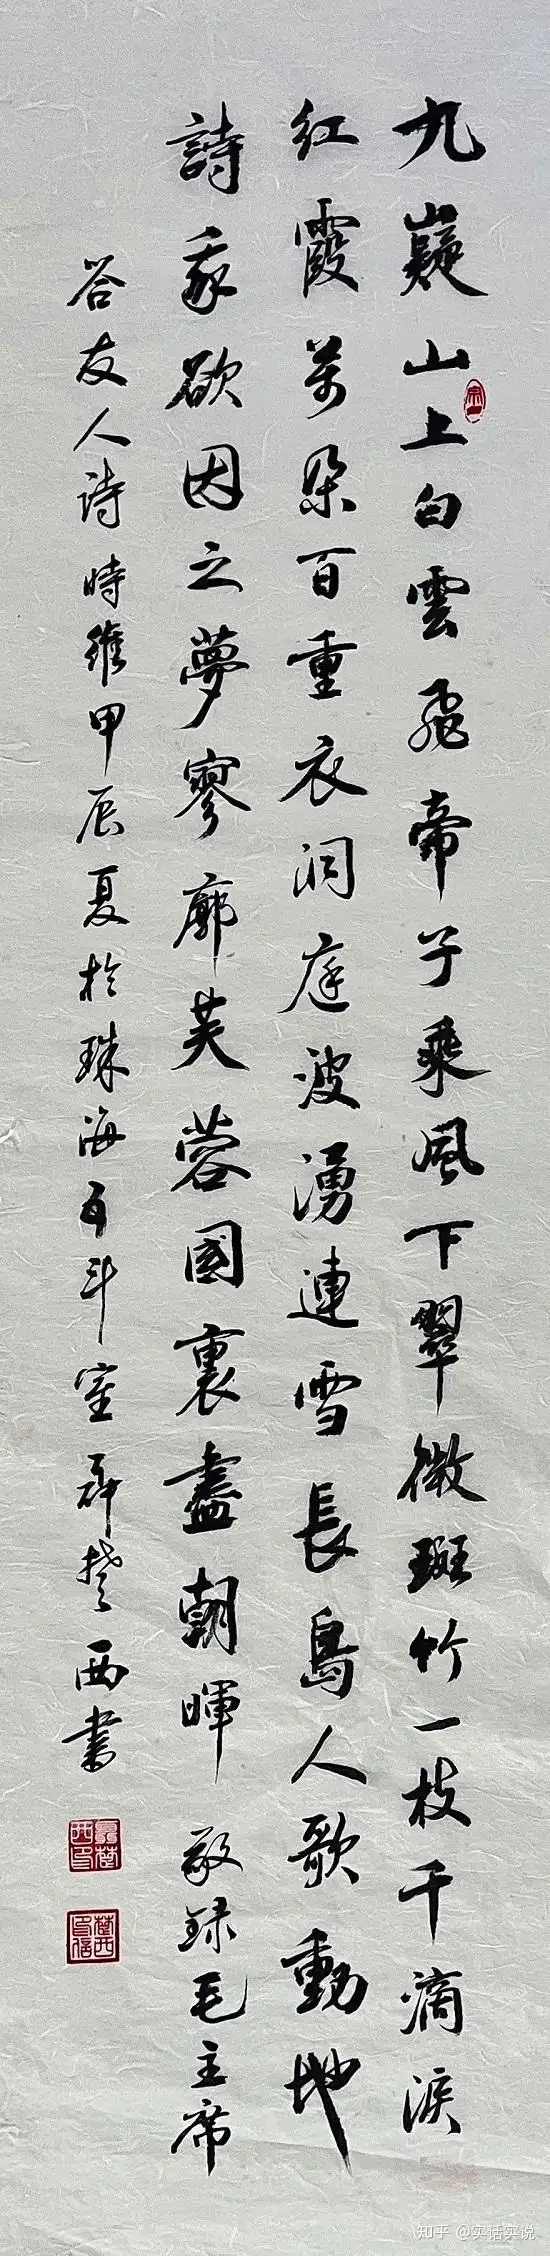 九嶷山上白雲飛帝子乘風下翠微斑竹一枝千滴淚
红霞萬朵百重衣洞庭波湧連雪長島人歌動地
詩我欲因之夢寥廓芙蓉國裏盡朝暉 敬録毛主席
答友人詩時維甲辰夏於珠海五斗室聶楚西書
知乎 @实话实说